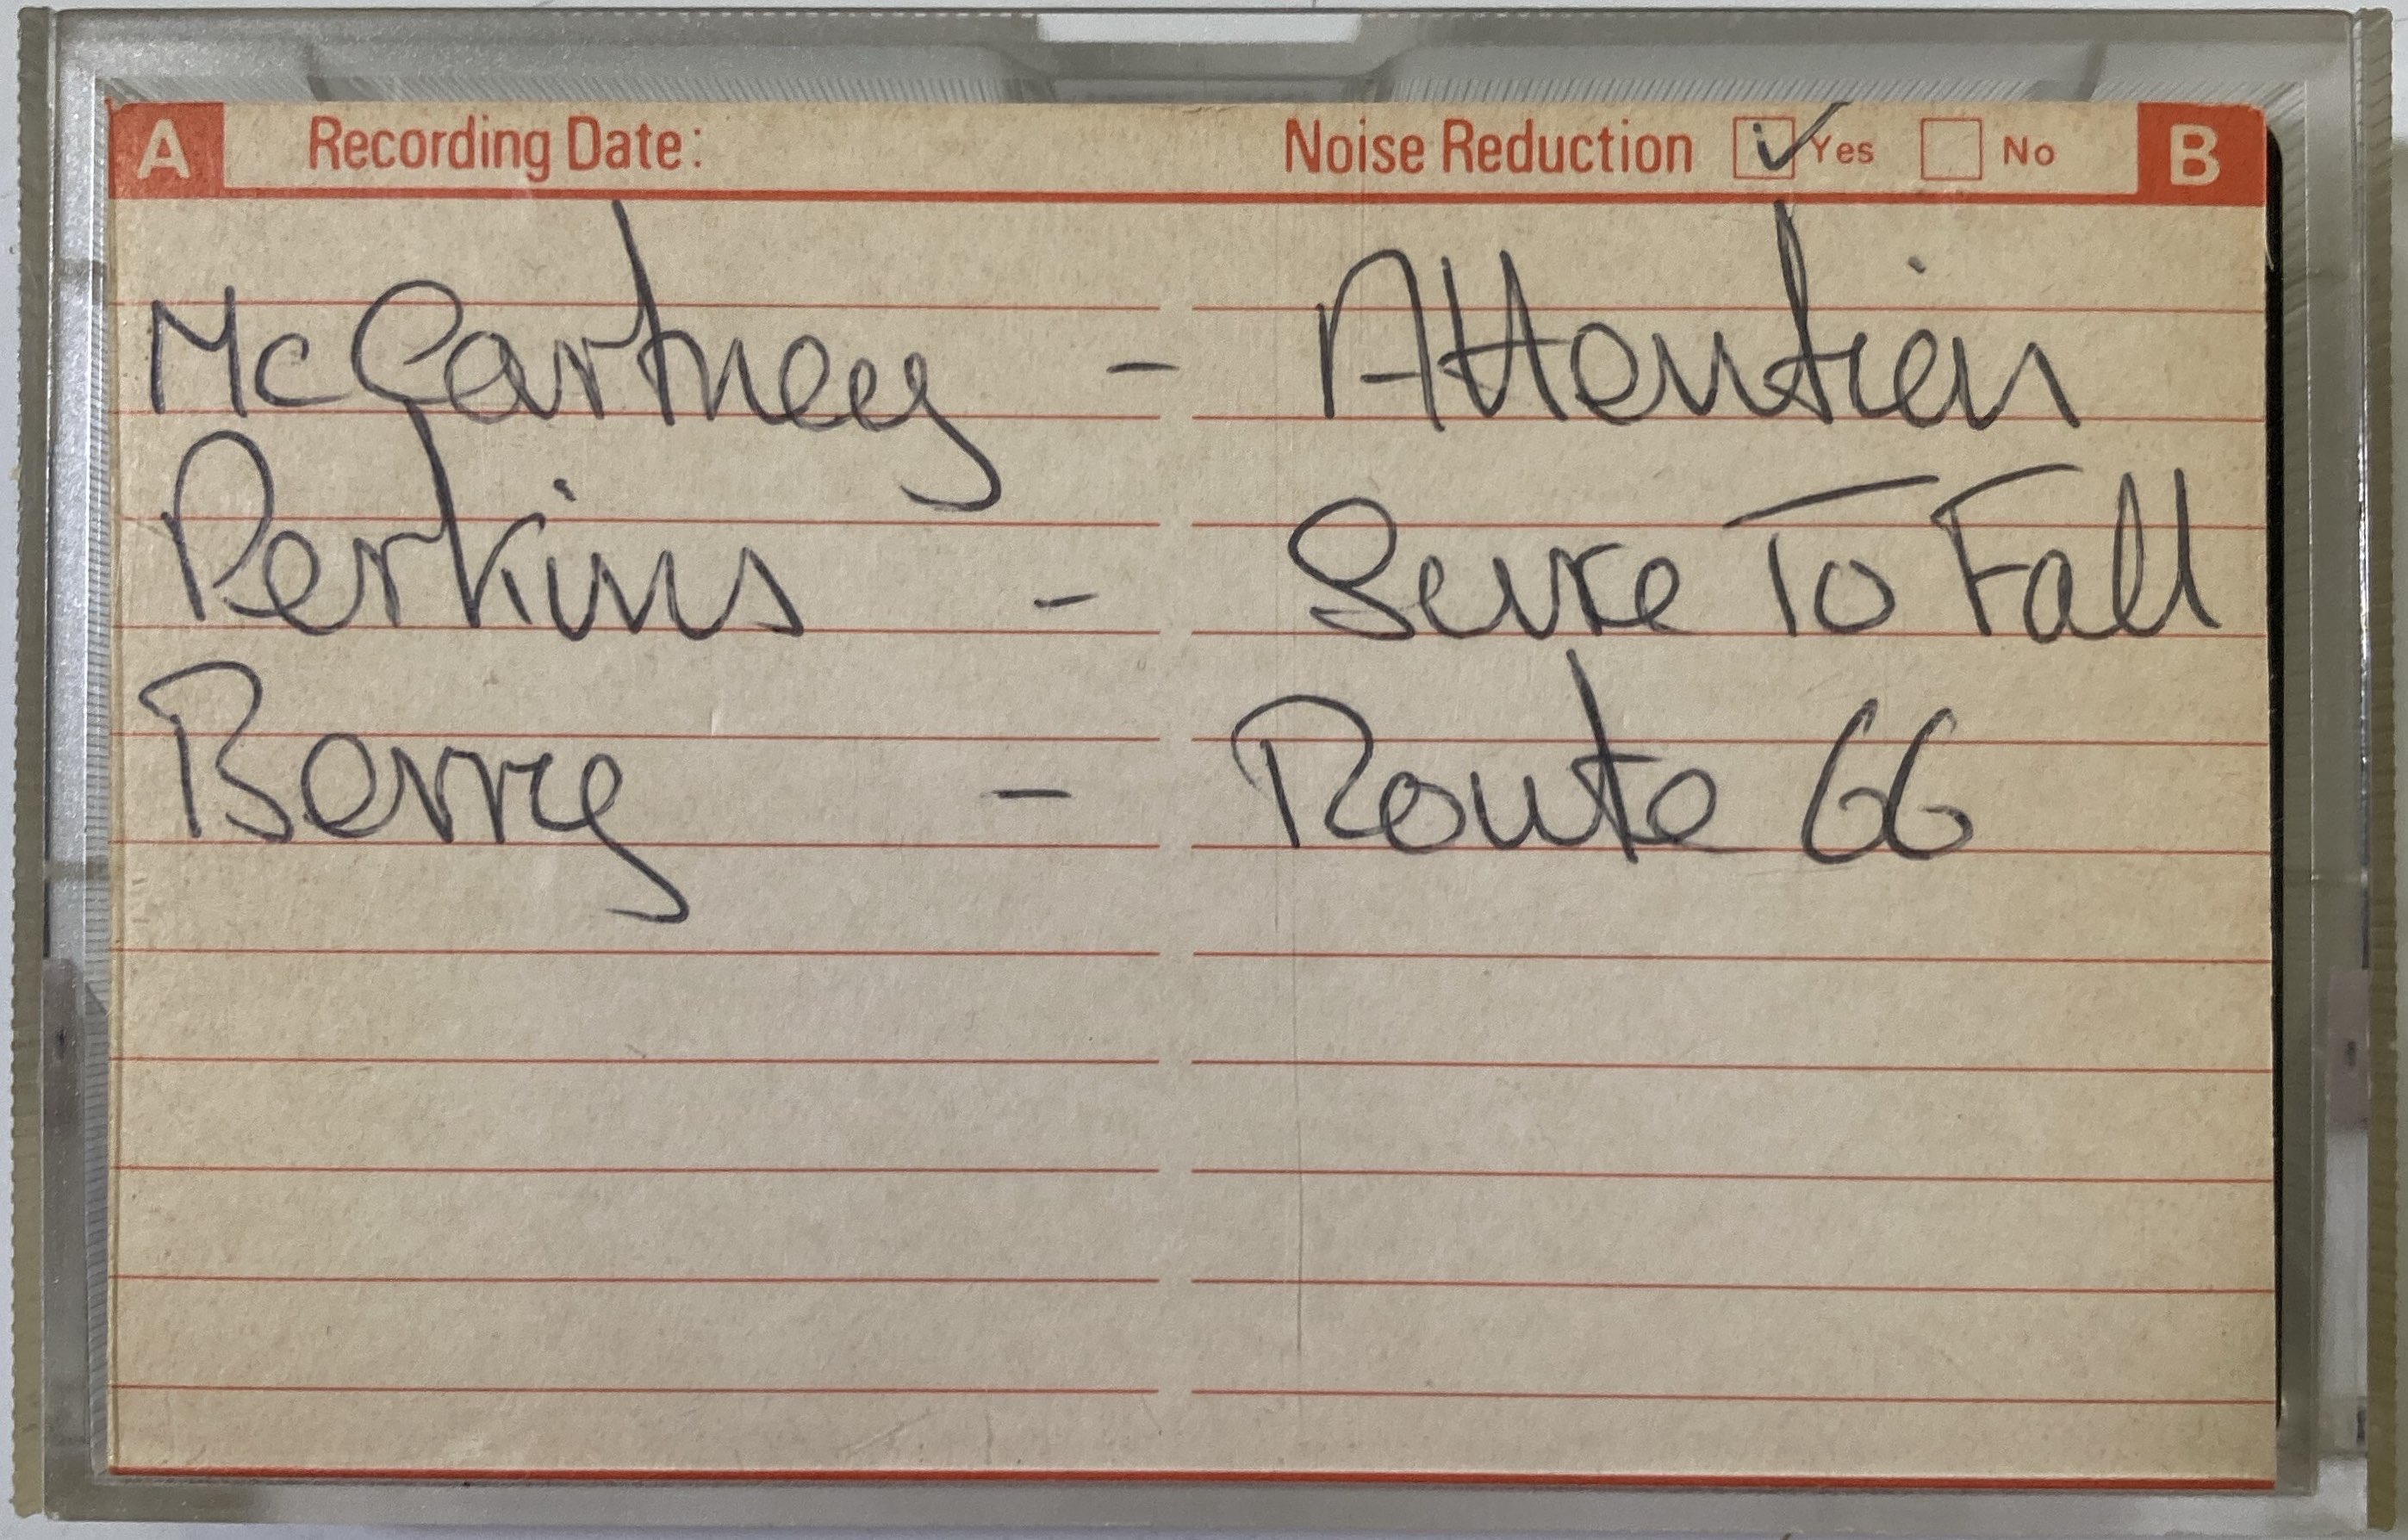 A Recording Date: Noise Reduction Yes No B
McCartney - Attention
Perkins - Sure To Fall
Berry - Route 66